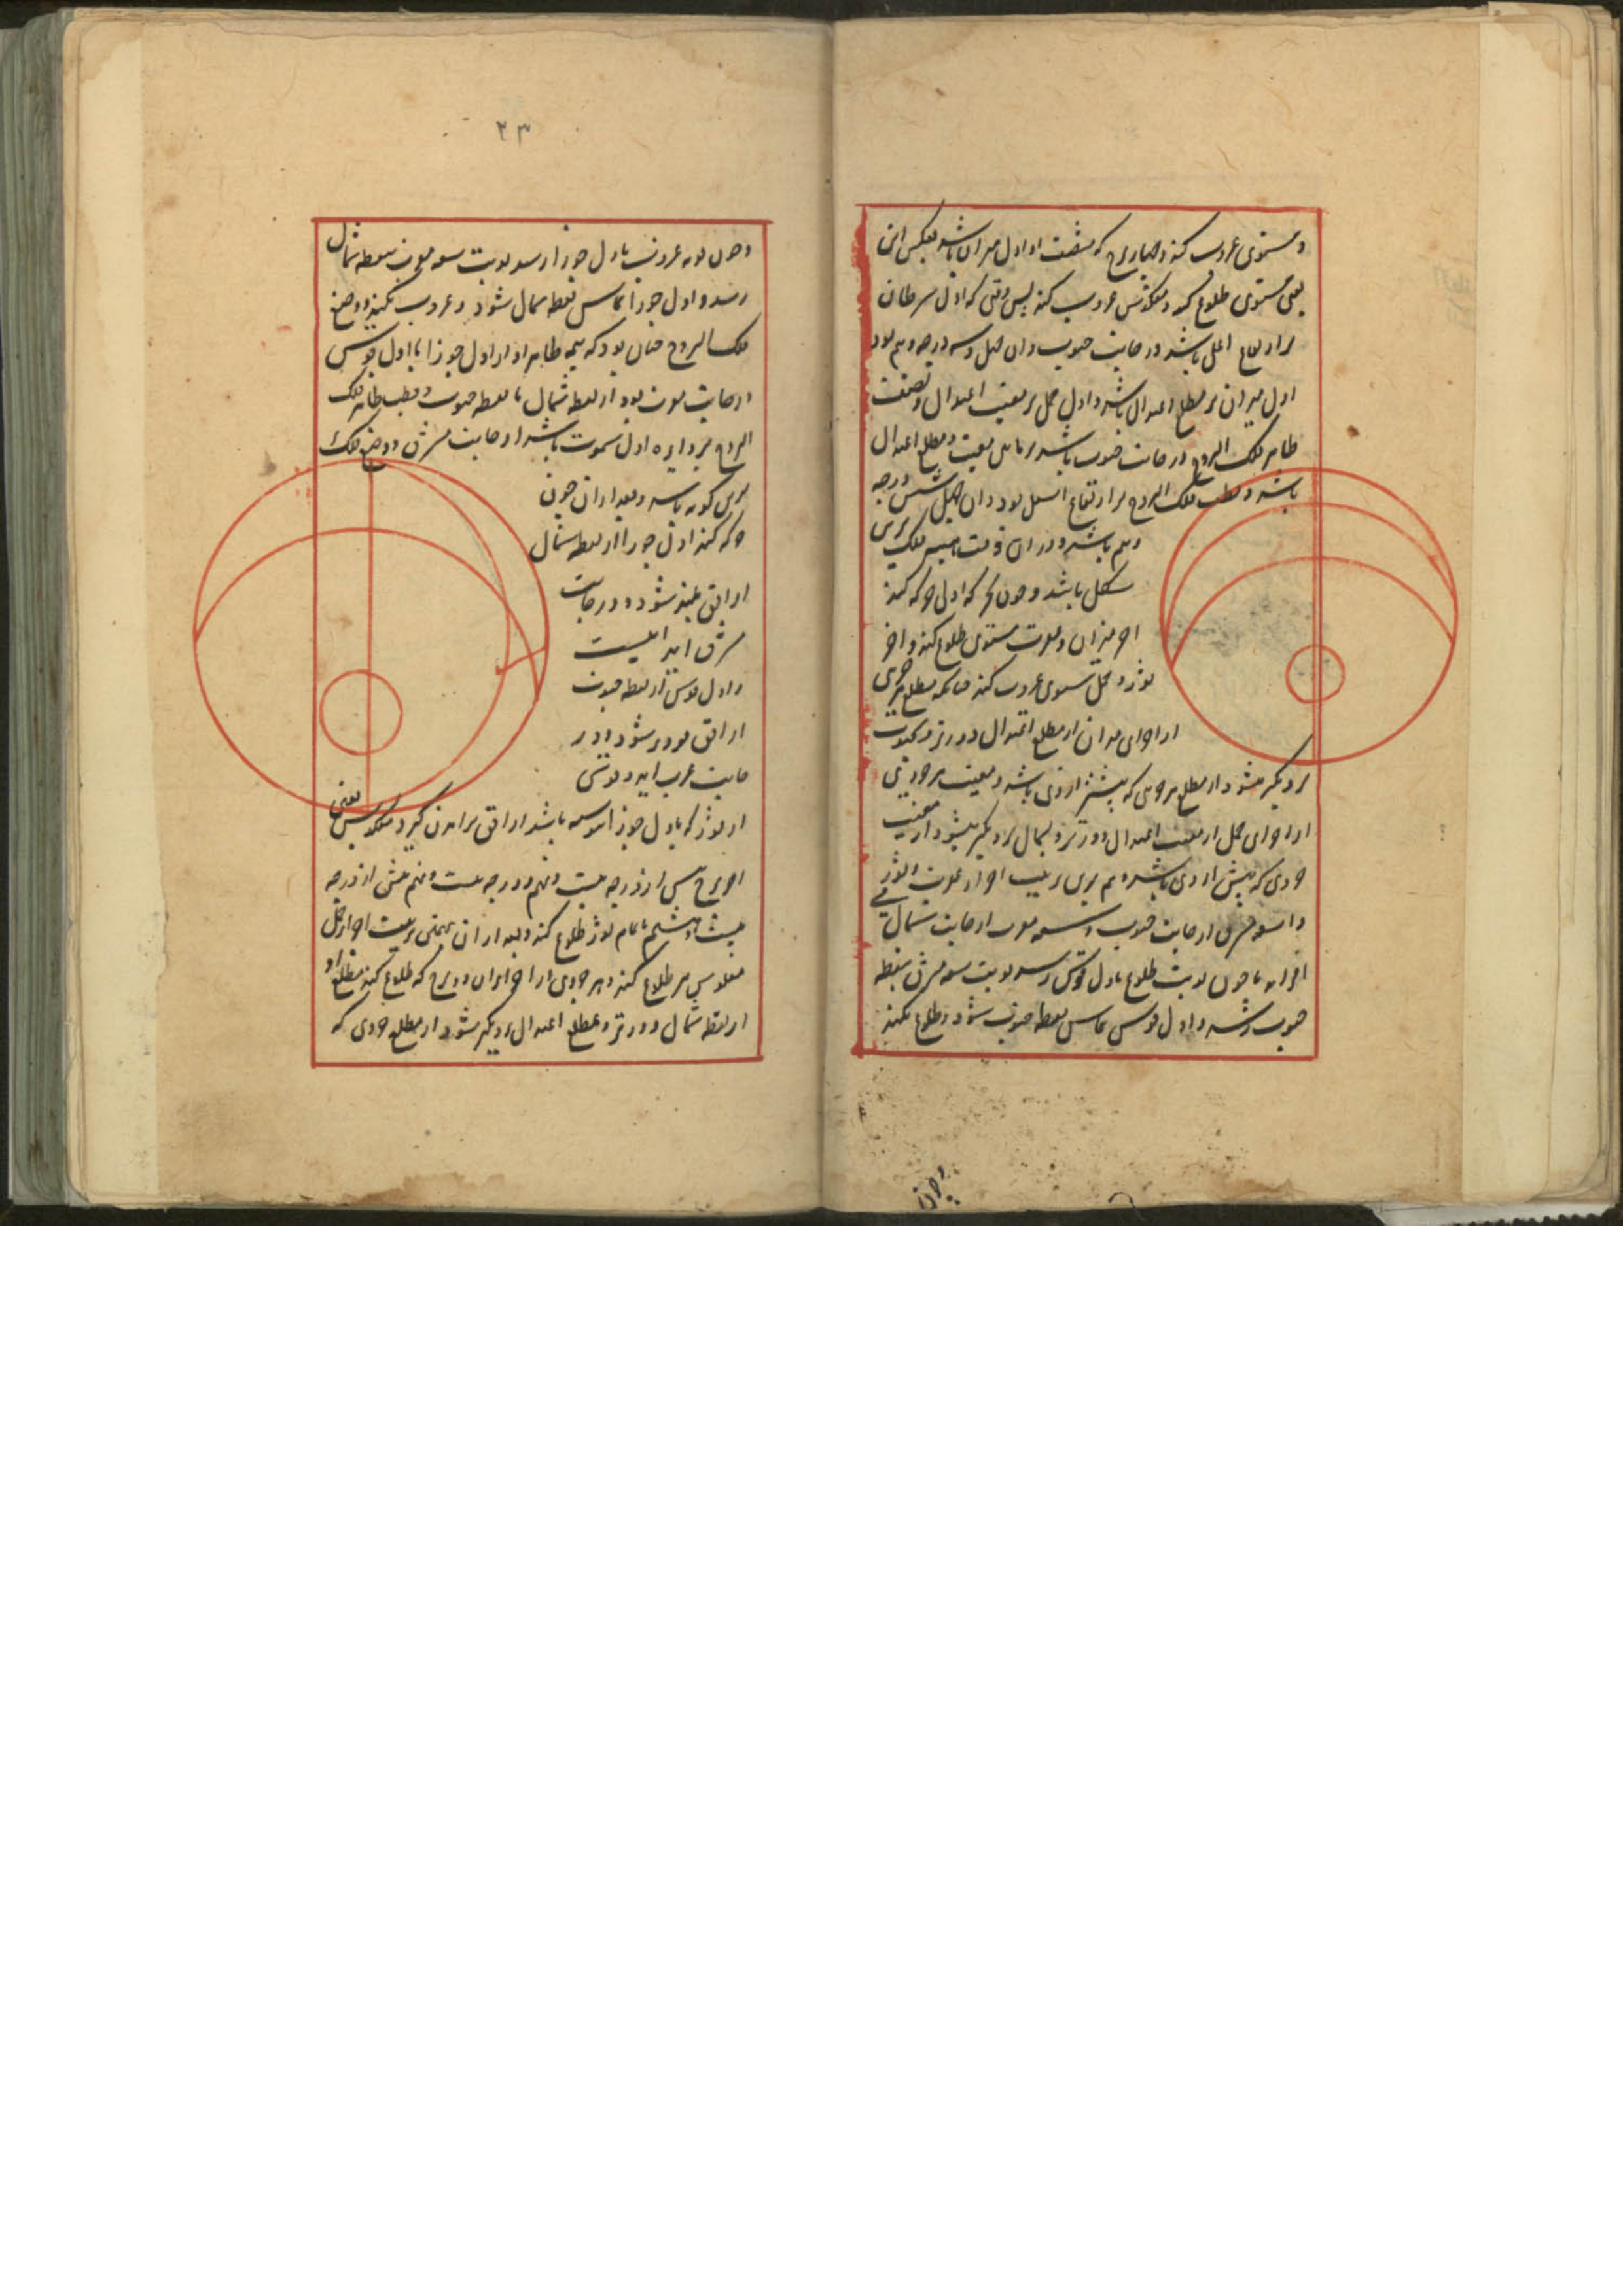 و مستوی غروب کند و چهار برج که منتصف او اول میزان باشد بعکس این
یعنی مستوی طلوع کند و معکوس غروب کند پس وقتی که اول سرطان
بر ارتفاع اعلی باشد در جانب جنوب و آن چهل و سه درجه و نیم بود
اول میزان بر مطلع اعتدال باشد و اول حمل بر مغیب اعتدال و نصف
ظاهر فلک البروج در جانب جنوب باشد مغیب و مطلع اعتدال
باشد و قطب فلک البروج بر ارتفاع اسفل بود و آن چهل شش درجه
و نیم باشد و در آن وقت فلک برین
شکل باشد و چون حرکت اولی حرکت کند
اجزاء میزان و عقرب مستوی طلوع کند و اجزاء
ثور و حمل مستوی غروب کند چنانکه مطلع هر جزوی
از اجزای میزان از مطلع اعتدال دورتر و بجنوب
نزدیکتر میشود از مطلع جزوی که پیشتر از وی باشد و مغیب هر جزوی
از اجزای حمل از مغیب اعتدال دورتر و بشمال نزدیکتر میشود از مغیب
جزوی که پیش از وی باشد و هم برین ترتیب اجزاء عقرب و ثور
و سعه مشرق از جانب جنوب و سعه مغرب از جانب شمال می
افزاید تا چون نوبت طلوع باول قوس رسد نوبت سعه مشرق بنقطه
جنوب رسد و اول قوس مماس نقطه جنوب شود و طلوع نکند
و چون
۲۳
و چون نوبه غروب باول جوزا رسد نوبت سعه مغرب بنقطه شمال
رسد و اول جوزا مماس نقطه شمال شود و غروب نکند و وضع
فلک البروج چنان بود که نیمه ظاهر از اول جوزا تا اول قوس
از جانب مغرب بود از نقطه شمال تا نقطه جنوب و قطب ظاهر فلک
البروج بر دایره اول سموت باشد از جانب مشرق و وضع فلک
برین گونه باشد و بعد از آن چون
حرکت کند اول جوزا از نقطه شمال
از افق بلند شود و در جانب
مشرق آید
و اول قوس از نقطه جنوب
از افق دور شود و در
جانب غرب آید و قوسی
از ثور که باول جوزا پیوسته باشد از افق برآمدن گیرد معکوس یعنی
آخر برج پس از درجه بیست و نهم و درجه بیست و نهم پیش از درجه
بیست و هشتم تا تمام ثور طلوع کند و بعد از آن بهمین ترتیب اجزاء حمل
معکوس طلوع کند و هر جزوی از اجزای آن دو برج که طلوع کند مطلع او
از نقطه شمال دورتر و بمطلع اعتدال نزدیکتر شود از مطلع جزوی که